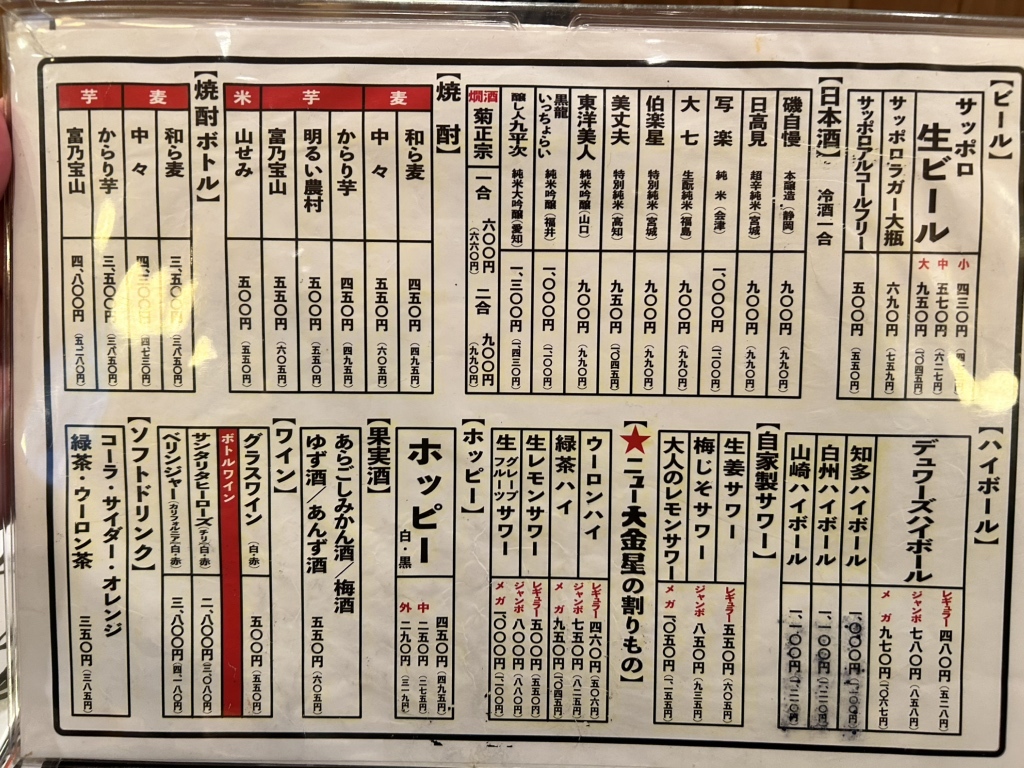 【ビール】
サッポロ
生ビール
小 四三〇円
中 五七〇円（六二七円）
大 九五〇円（一〇四五円）
サッポロラガー大瓶 六九〇円（七五九円）
サッポロアルコールフリー 五〇〇円（五五〇円）
【日本酒】 冷酒一合
磯自慢 本醸造（静岡） 九〇〇円（九九〇円）
日高見 超辛純米（宮城） 九〇〇円（九九〇円）
写楽 純米（会津） 一、〇〇〇円（一一〇〇円）
大七 生酛純米（福島） 九〇〇円（九九〇円）
伯楽星 特別純米（宮城） 九〇〇円（九九〇円）
美丈夫 特別純米（高知） 九五〇円（一〇四五円）
東洋美人 純米吟醸（山口） 九〇〇円（九九〇円）
黒龍 いっちょらい 純米吟醸（福井） 一、〇〇〇円（一一〇〇円）
醸し人九平次 純米大吟醸（愛知） 一、三〇〇円（一四三〇円）
燗酒 菊正宗 一合 六〇〇円（六六〇円） 二合 九〇〇円（九九〇円）
【焼酎】
麦
和ら麦 四五〇円（四九五円）
中々 五五〇円（六〇五円）
芋
からり芋 四五〇円（四九五円）
明るい農村 五〇〇円（五五〇円）
富乃宝山 五五〇円（六〇五円）
米
山せみ 五〇〇円（五五〇円）
【焼酎ボトル】
麦
和ら麦 三、五〇〇円（三八五〇円）
中々 四、三〇〇円（四七三〇円）
芋
からり芋 三、五〇〇円（三八五〇円）
富乃宝山 四、八〇〇円（五二八〇円）
【ハイボール】
デュワーズハイボール
レギュラー 四八〇円（五二八円）
ジャンボ 七八〇円（八五八円）
メガ 九七〇円（一〇六七円）
知多ハイボール 一、〇〇〇円（一一〇〇円）
白州ハイボール 一、一〇〇円（一二一〇円）
山崎ハイボール 一、一〇〇円（一二一〇円）
【自家製サワー】
生姜サワー
梅じそサワー
大人のレモンサワー
レギュラー 五五〇円（六〇五円）
ジャンボ 八五〇円（九三五円）
メガ 一〇五〇円（一一五五円）
【★ニュー大金星の割りもの】
ウーロンハイ
緑茶ハイ
レギュラー 四六〇円（五〇六円）
ジャンボ 七五〇円（八二五円）
メガ 九五〇円（一〇四五円）
生レモンサワー
生グレープフルーツサワー
レギュラー 五〇〇円（五五〇円）
ジャンボ 八〇〇円（八八〇円）
メガ 一〇〇〇円（一一〇〇円）
【ホッピー】
ホッピー 白・黒 四五〇円（四九五円）
中 二五〇円（二七五円）
外 二九〇円（三一九円）
【果実酒】
あらごしみかん酒／梅酒
ゆず酒／あんず酒 五五〇円（六〇五円）
【ワイン】
グラスワイン（白・赤） 五〇〇円（五五〇円）
ボトルワイン
サンタリタヒーローズ（チリ）（白・赤） 二、八〇〇円（三〇八〇円）
ベリンジャー（カリフォルニア）（白・赤） 三、八〇〇円（四一八〇円）
【ソフトドリンク】
コーラ・サイダー・オレンジ
緑茶・ウーロン茶 三五〇円（三八五円）